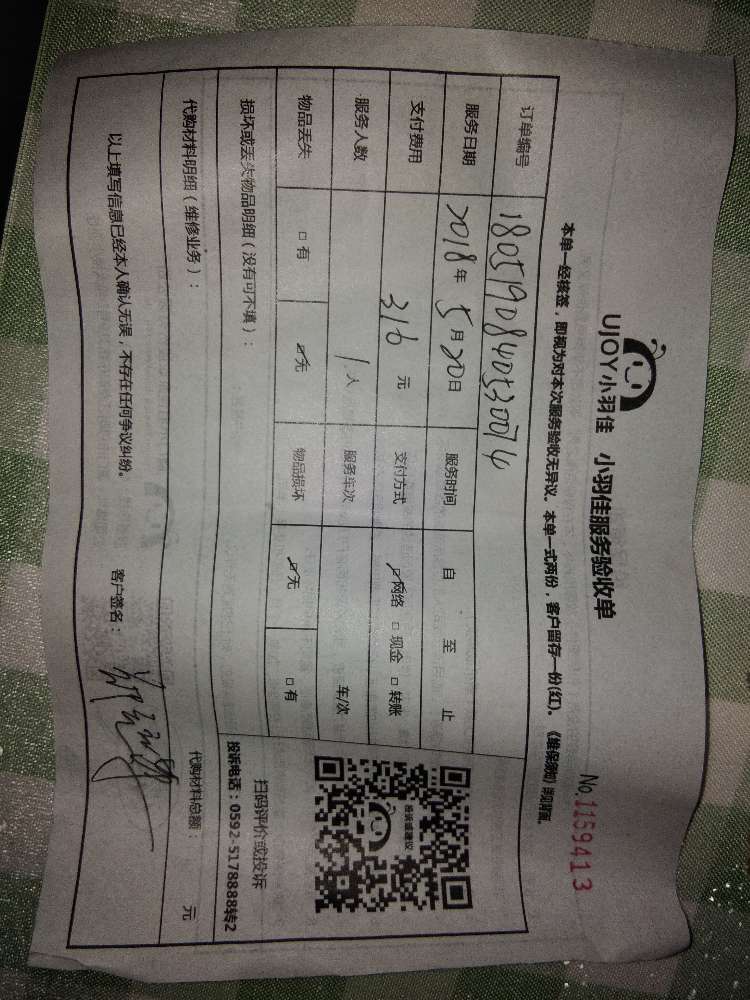 UJOY小羽佳 小羽佳服务验收单
No.1159413
本单一经核签，即视为对本次服务验收无异议。本单一式两份，客户留存一份(红)。《维保须知》详见背面。
订单编号 1805190840530074
服务日期 2018年5月20日 服务时间 自 至 止
支付费用 316元 支付方式 ☑网络 □现金 □转账
服务人数 1人 服务车次 车/次
物品丢失 □有 ☑无 物品损坏 ☑无 □有
损坏或丢失物品明细（没有可不填）：
扫码评价或投诉
投诉电话：0592-5178888转2
代购材料明细（维修业务）： 代购材料总额： 元
以上填写信息已经本人确认无误，不存在任何争议纠纷。 客户签名：